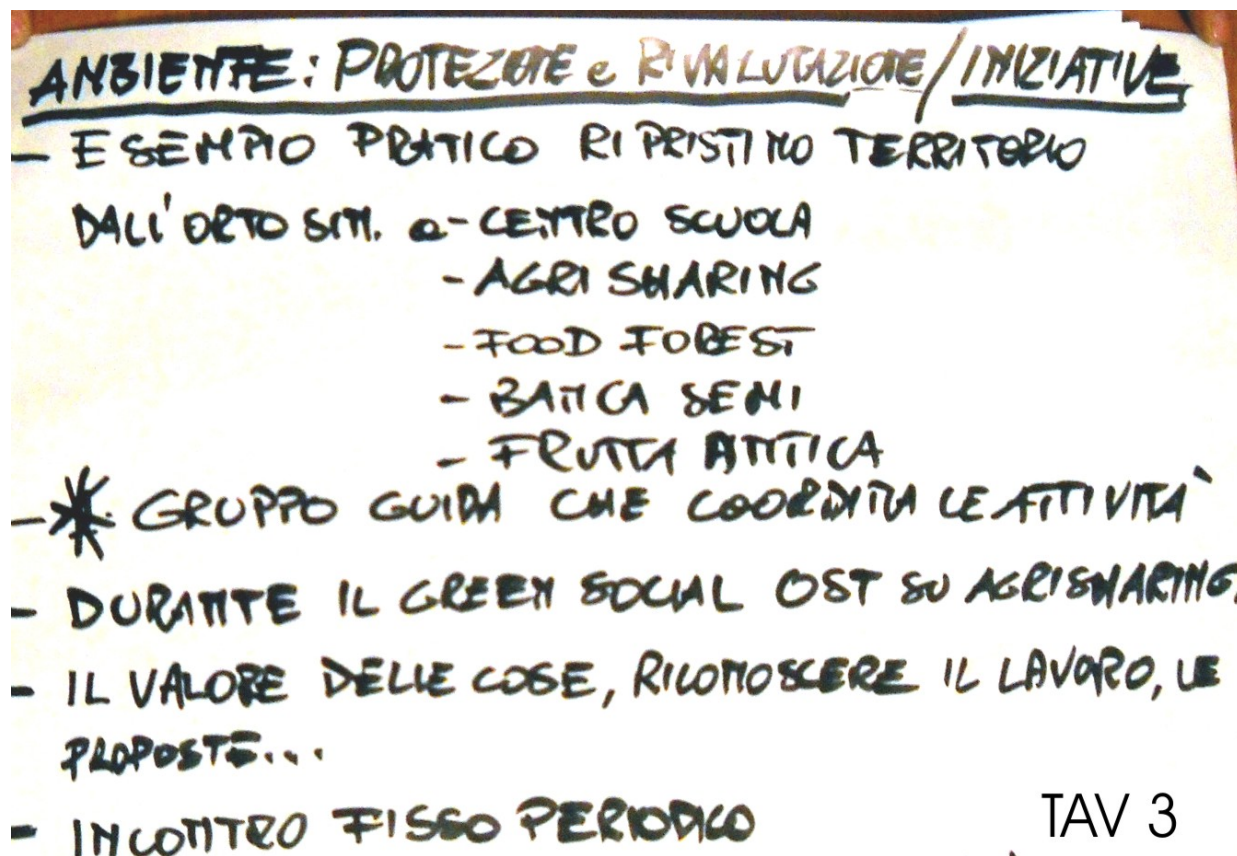 AMBIENTE: PROTEZIONE e RIVALUTAZIONE/INIZIATIVE
- ESEMPIO PRATICO RIPRISTINO TERRITORIO
DALL'ORTO SIN. a - CENTRO SCUOLA
- AGRI SHARING
- FOOD FOREST
- BANCA SEMI
- FRUTTA ANTICA
- * GRUPPO GUIDA CHE COORDINA LE ATTIVITÀ
- DURANTE IL GREEN SOCIAL OST SU AGRISHARING.
- IL VALORE DELLE COSE, RICONOSCERE IL LAVORO, LE
PROPOSTE...
- INCONTRO FISSO PERIODICO
TAV 3